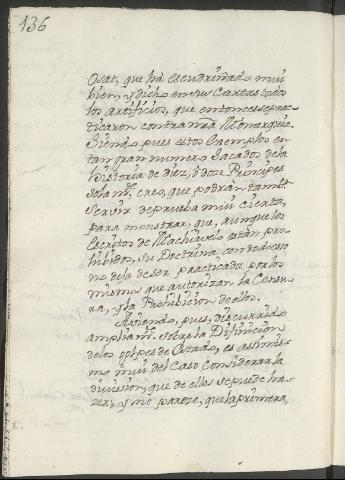 136
Osat, que há escudriñado mui
bien, y dicho en sus Cartas todos
los artificios, que entonces se prac-
ticaron contra nrã Monarquia.
Siendo pues estos exemplos en
tan gran numero sacados dela
Historia de diez, ò doze Principes
solam.te creo, que podràn tamb.n
servir de prueba mui cierta,
para monstrar, que, aunque los
escritos de Machiavelo estàn pro-
hibidos, su Doctrina con todo eso
no deja de ser practicada por los
mismos que autorizan la Censu-
ra, y la Prohibicion de ellos.
Aviendo, pues, discurrido
ampliam.te sobre la Difinicion
delos golpes de Estado, es asimis-
mo mui del Caso Considerar la
division, que de ellos se puede ha-
zer; y me pareze, que la primera,